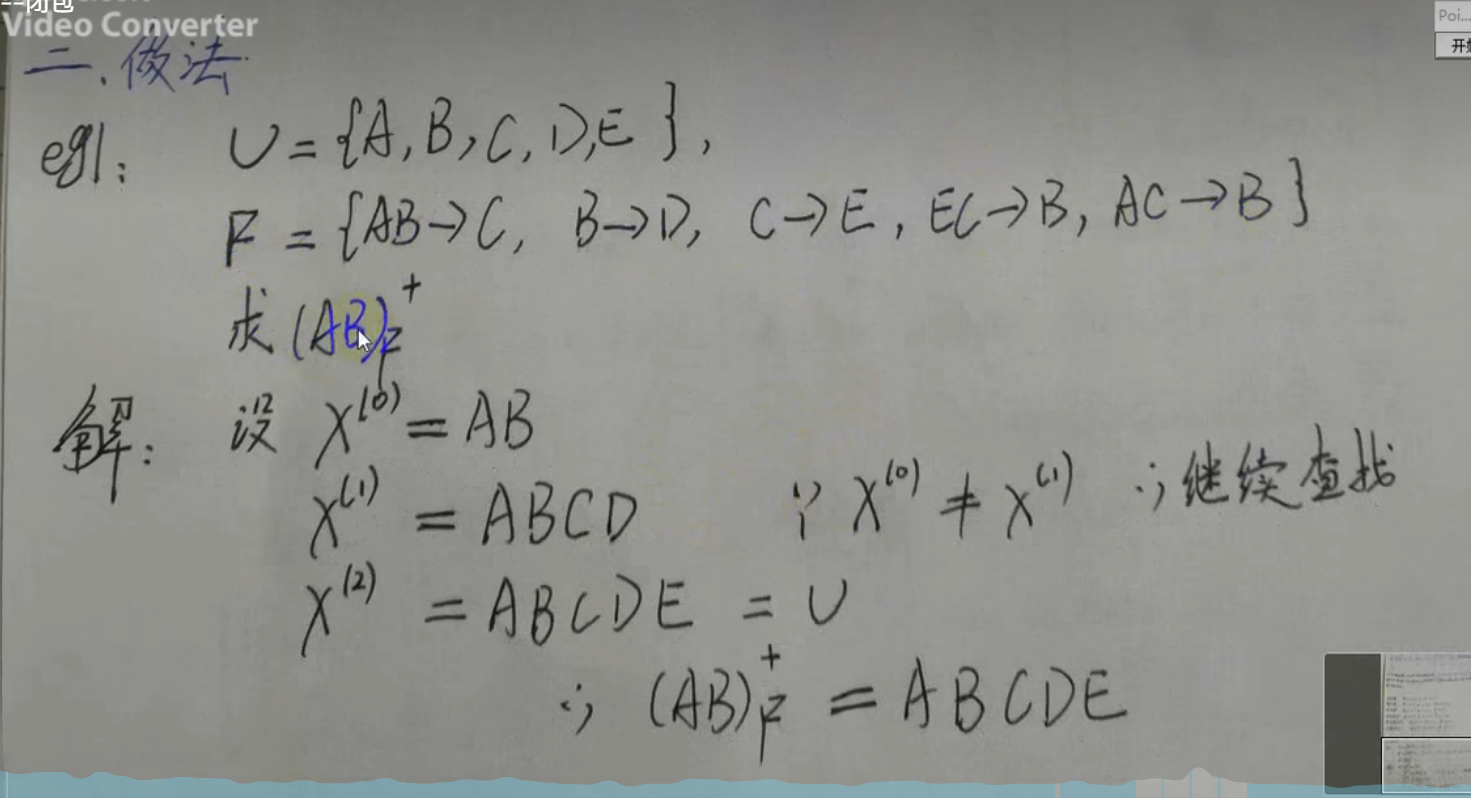 ==闭包
Video Converter
Poi...
二、做法
eg1: U = {A, B, C, D, E},
F = {AB→C, B→D, C→E, EC→B, AC→B}
求 (AB)F+
解: 设 X(0) = AB
X(1) = ABCD ∵ X(0) ≠ X(1) ∴ 继续查找
X(2) = ABCDE = U
∴ (AB)F+ = ABCDE